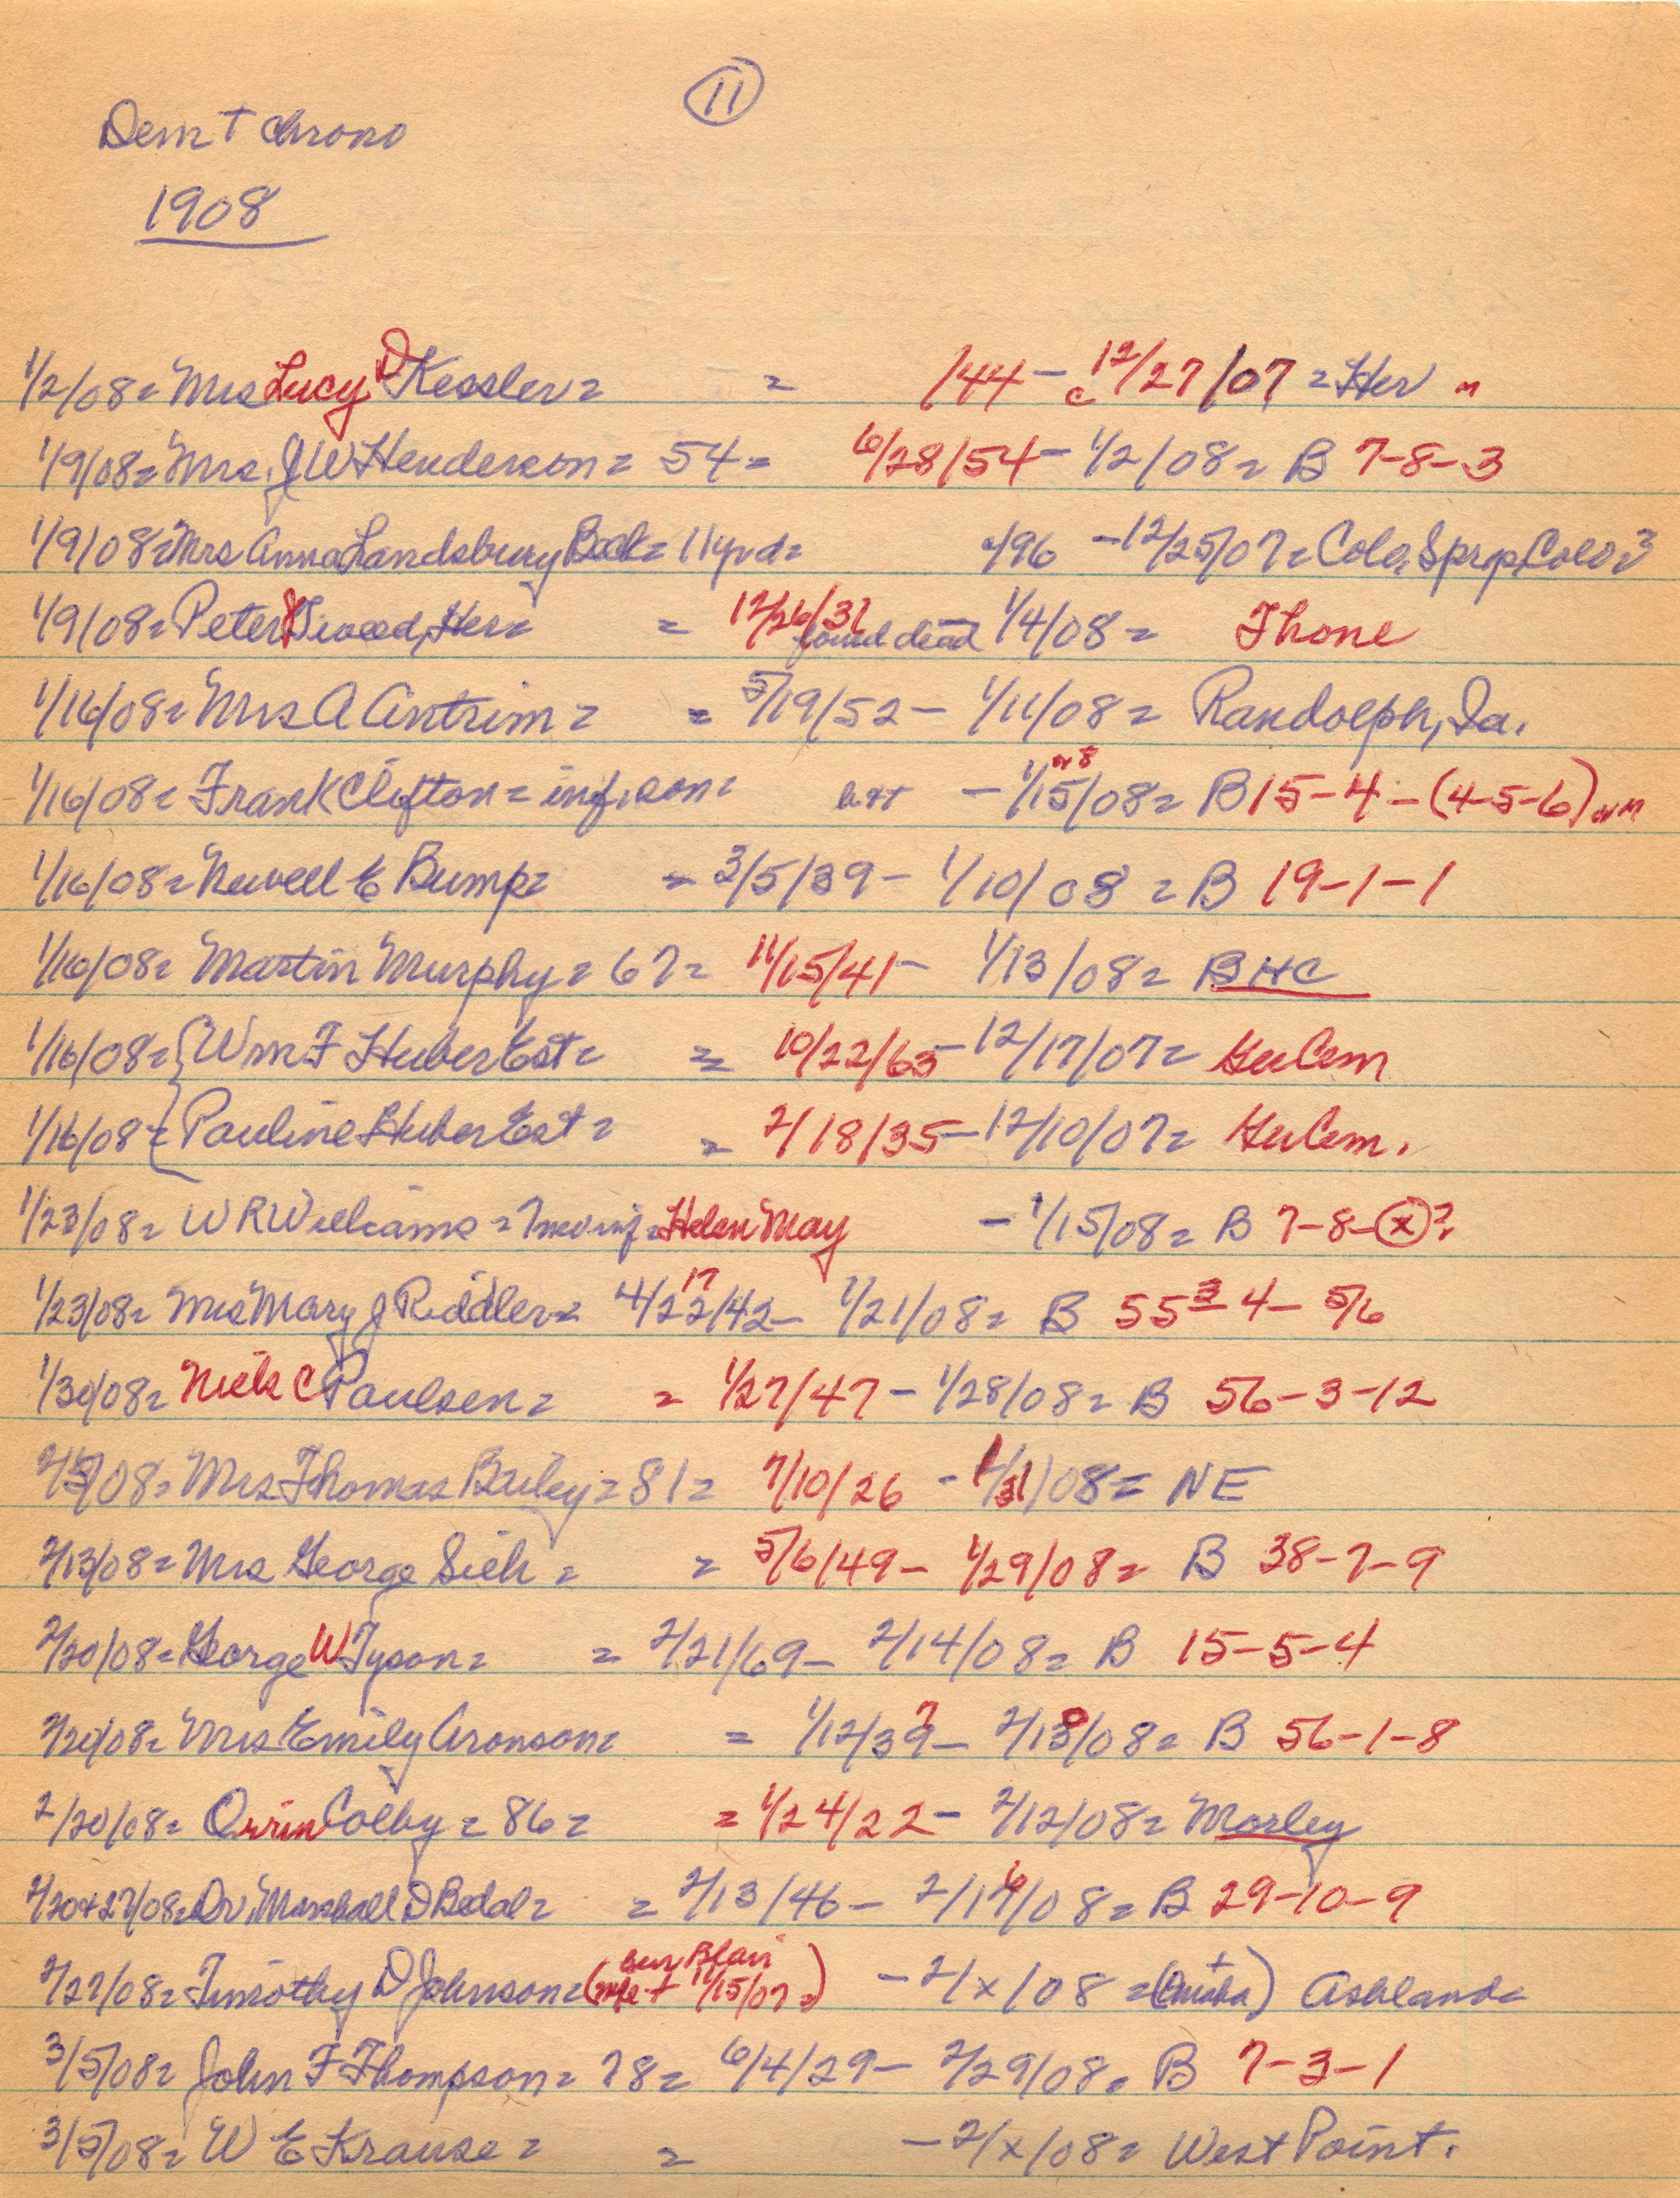 11
Dem + chrono
1908
1/2/08= Mrs Lucy D Kessler= = /44 - c 12/27/07 = Her "
1/9/08= Mrs. J W Henderson= 54= 6/28/54 - 1/2/08= B 7-8-3
1/9/08= Mrs Anna Landsbury Beck= 11yrd= /96 - 12/25/07= Colo. Sprgs, Colo?
1/9/08= Peter Siwood, Her= = 12/26/31 found dead - 1/4/08= Thone
1/16/08= Mrs A Antrim= = 5/19/52 - 1/11/08= Randolph, Ia.
1/16/08= Frank Clifton= inf. son= - 1/15/08= or 8 B 15-4-(4-5-6)
1/16/08= Newell E Bump= = 3/5/39 - 1/10/08= B 19-1-1
1/16/08= Martin Murphy= 67= 11/15/41 - 1/13/08= BHC
1/16/08= {Wm F Huber Est= = 10/22/63 - 12/17/07= Her Cem
1/16/08= {Pauline Huber Est= = 2/18/35 - 12/10/07= Her Cem.
1/23/08= W R Williams= 7mo inf= Helen May - 1/15/08= B 7-8-(x)?
1/23/08= Mrs Mary J Riddler= 4/22/42 17 - 1/21/08= B 55-3-4- 5/6
1/30/08= Niels C Paulsen= = 1/27/47 - 1/28/08= B 56-3-12
/08= Mrs Thomas Briley= 81= 7/10/26 - 1/31/08= NE
2/13/08= Mrs George Sieh= = 5/6/49 - 1/29/08= B 38-7-9
2/20/08= George W Tyson= = 2/21/69 - 2/14/08= B 15-5-4
2/20/08= Mrs Emily Aronson= = 1/12/39 7 - 2/13/08= 8 B 56-1-8
2/20/08= Orrin Colby= 86= = 1/24/22 - 2/12/08= Morley
2/20+27/08= Dr. Marshall D Bedal= = 2/13/46 - 2/17/08= 6 B 29-10-9
2/27/08= Timothy D Johnson= (wife + Blair 11/15/07=) - 2/x/08= (+ Omaha) Ashland=
3/5/08= John F Thompson= 78= 6/4/29 - 2/29/08= B 7-3-1
3/5/08= W E Krause= = - 2/x/08= West Point.